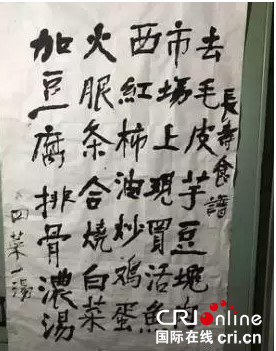 長寿食譜
去毛皮芋豆塊肉
市场上現買活魚
西紅柿油炒鸡蛋
火腿条合燒白菜
加豆腐排骨濃湯
四菜一湯
CRI online
国际在线 cri.cn